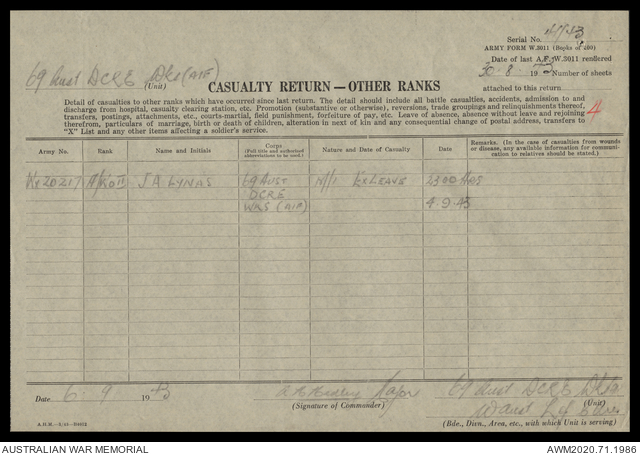 Serial No. 4/43
ARMY FORM W.3011 (Books of 200)
Date of last A.F. W.3011 rendered
30 . 8 . 1943 Number of sheets
attached to this return
4
69 Aust DCRE Wks (AIF)
(Unit)
CASUALTY RETURN—OTHER RANKS
Detail of casualties to other ranks which have occurred since last return. The detail should include all battle casualties, accidents, admission to and
discharge from hospital, casualty clearing station, etc. Promotion (substantive or otherwise), reversions, trade groupings and relinquishments thereof,
transfers, postings, attachments, etc., courts-martial, field punishment, forfeiture of pay, etc. Leave of absence, absence without leave and rejoining
therefrom, particulars of marriage, birth or death of children, alteration in next of kin and any consequential change of postal address, transfers to
"X" List and any other items affecting a soldier's service.
Army No. Rank Name and Initials Corps (Full title and authorised abbreviations to be used.) Nature and Date of Casualty Date Remarks. (In the case of casualties from wounds or disease, any available information for communication to relatives should be stated.)
J A LYNAS 69 AUST M/I Ex LEAVE 2300 HRS
DCRE
WKS (AIF) 4.9.43
Date 6 . 9 1943
Major
(Signature of Commander)
69 Aust DCRE Wks
(Unit)
(Bde., Divn., Area, etc., with which Unit is serving)
AUSTRALIAN WAR MEMORIAL
AWM2020.71.1986